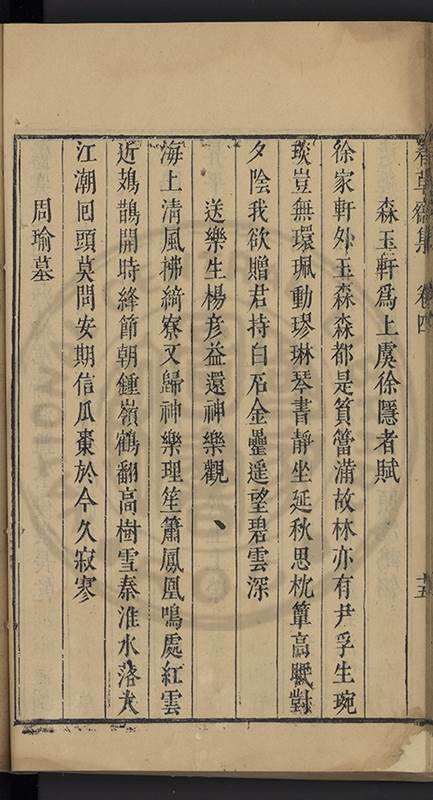 春草齋集 卷四 十五
森玉軒爲上虞徐隱者賦
徐家軒外玉森森都是篔簹滿故林亦有尹孚生琬
琰豈無環珮動璆琳琴書靜坐延秋思枕簟高眠對
夕陰我欲贈君持白石金罍遥望碧雲深
送樂生楊彦益還神樂觀
海上清風拂綺寮又歸神樂理笙簫鳳凰鳴處紅雲
近鳷鵲開時絳節朝鍾嶺鶴翻高樹雪秦淮水落大
江潮囘頭莫問安期信瓜棗於今久寂寥
周瑜墓